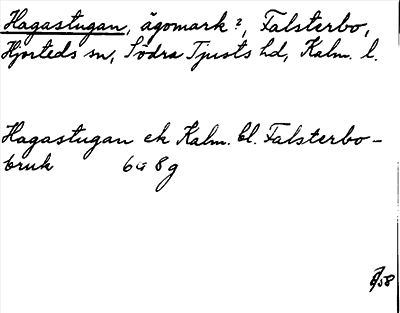 Hagastugan, ägomark?, Falsterbo,
Hjorteds sn, Södra Tjusts hd, Kalm. l.
Hagastugan ek Kalm. bl. Falsterbo-
bruk 6 G 8 g